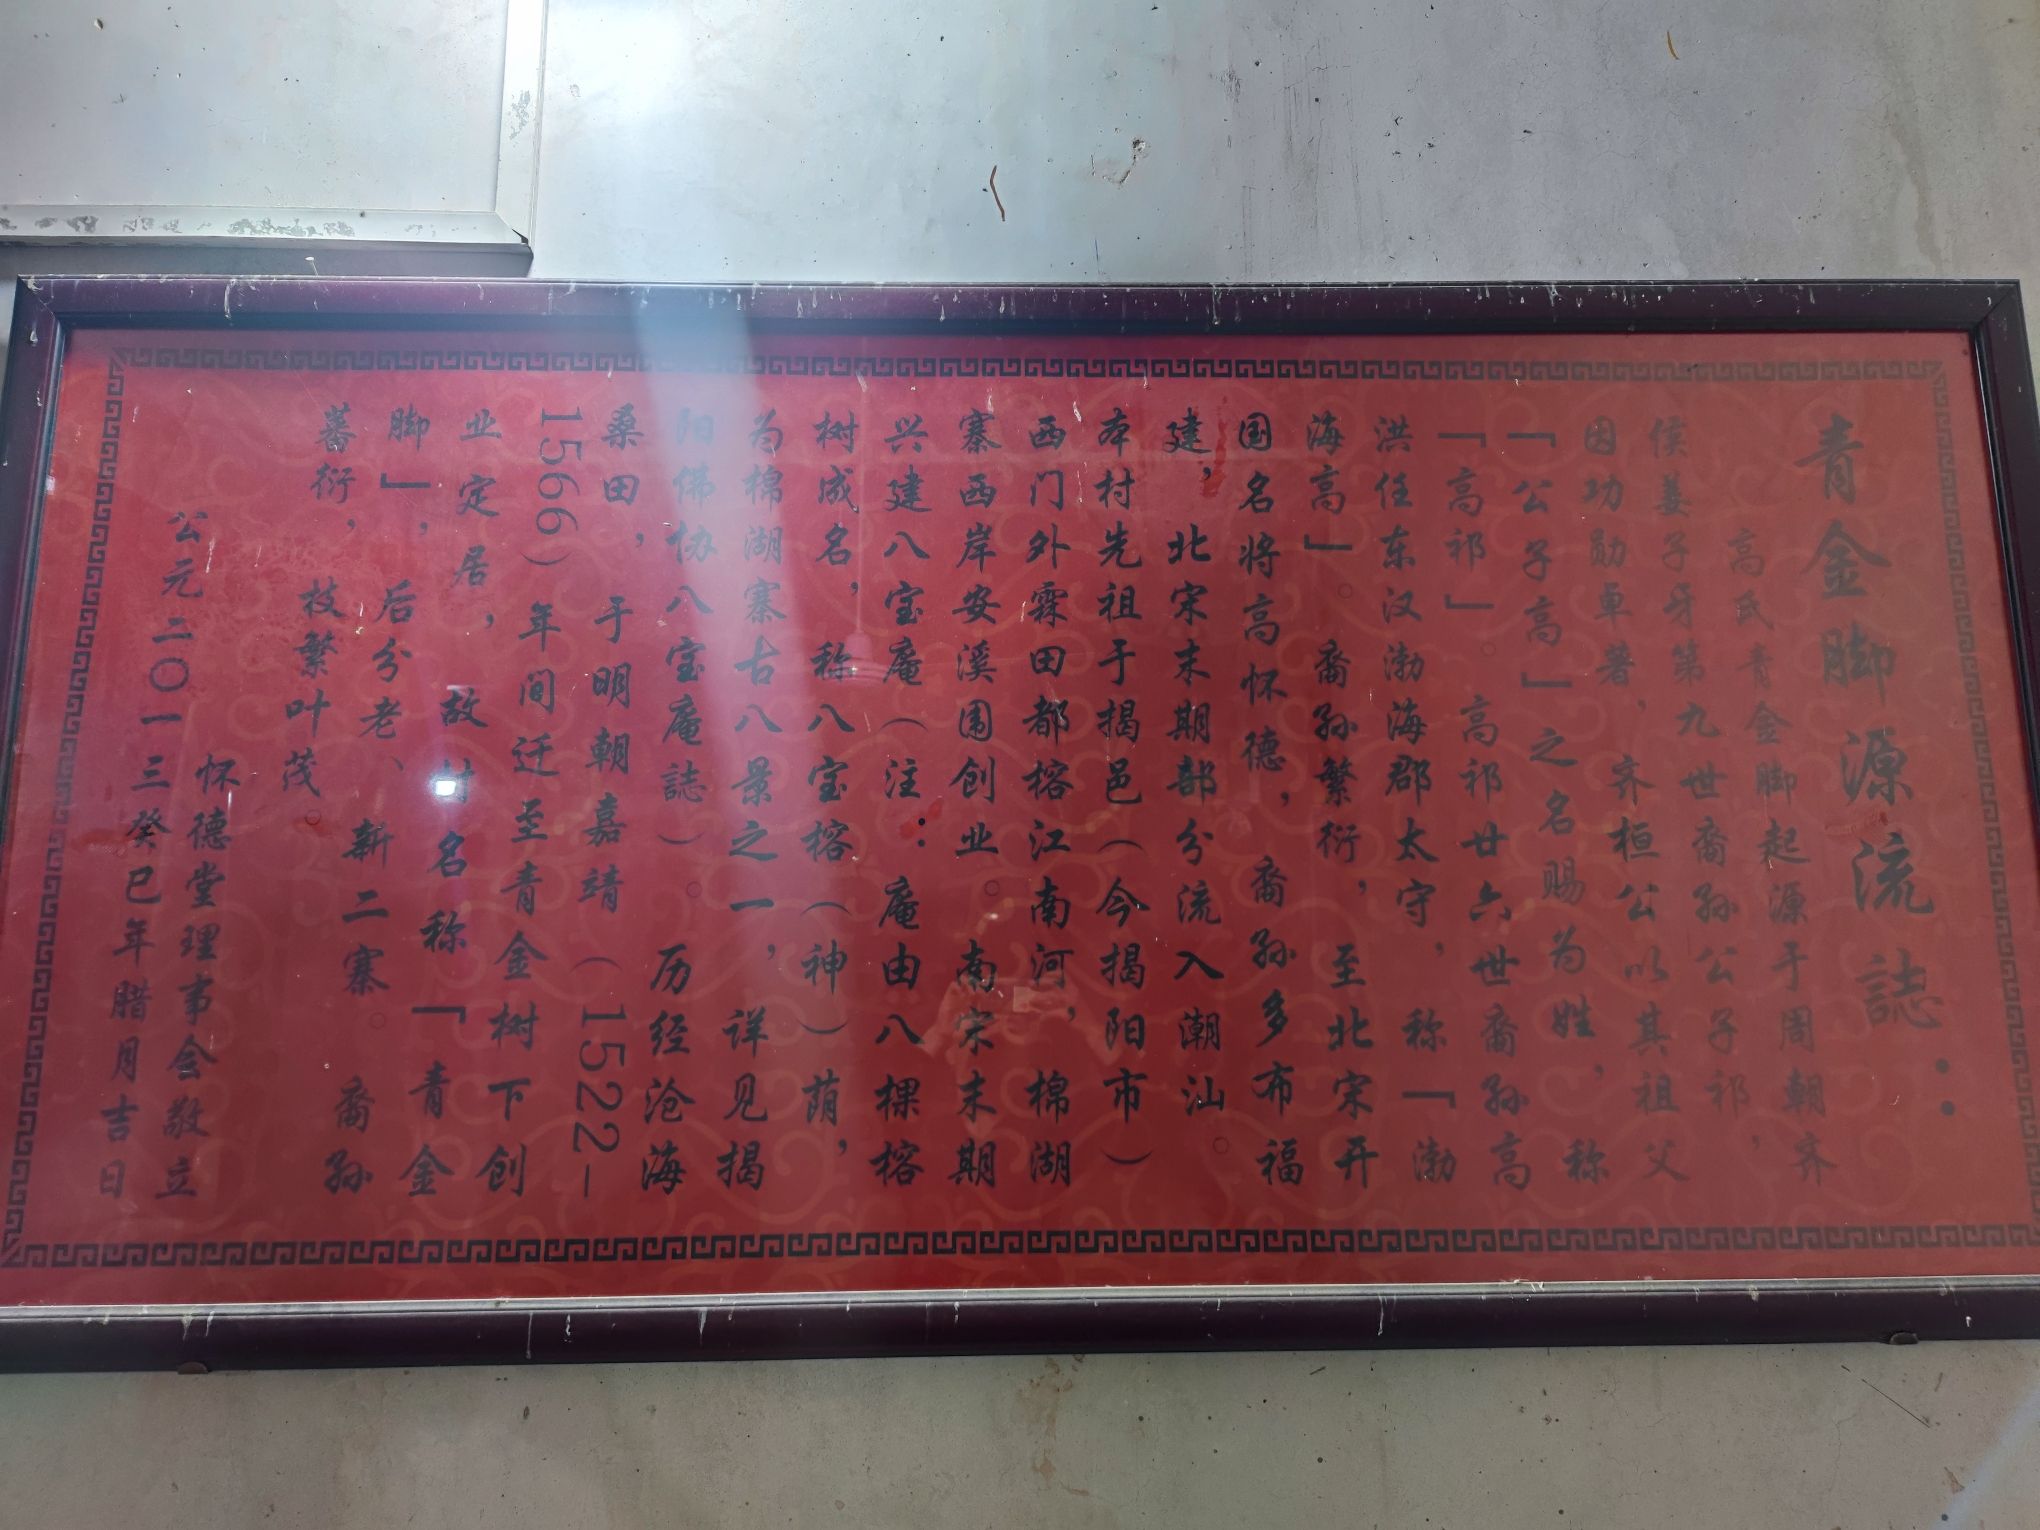 青金脚源流誌：
高氏青金脚起源于周朝齐
侯姜子牙第九世裔孙公子祁，
因功勋卓著，齐桓公以其祖父
「公子高」之名赐为姓，称
「高祁」。高祁廿六世裔孙高
洪任东汉渤海郡太守，称「渤
海高」。裔孙繁衍，至北宋开
国名将高怀德，裔孙多布福
建，北宋末期部分流入潮汕。
本村先祖于揭邑（今揭阳市）
西门外霖田都榕江南河，棉湖
寨西岸安溪围创业。南宋末期
兴建八宝庵（注：庵由八棵榕
树成名，称八宝榕（神）荫，
为棉湖寨古八景之一，详见揭
阳佛协八宝庵誌）。历经沧海
桑田，于明朝嘉靖（1522–
1566）年间迁至青金树下创
业定居，故村名称「青金
脚」，后分老、新二寨。裔孙
蕃衍，枝繁叶茂。
怀德堂理事会敬立
公元二〇一三癸巳年腊月吉日